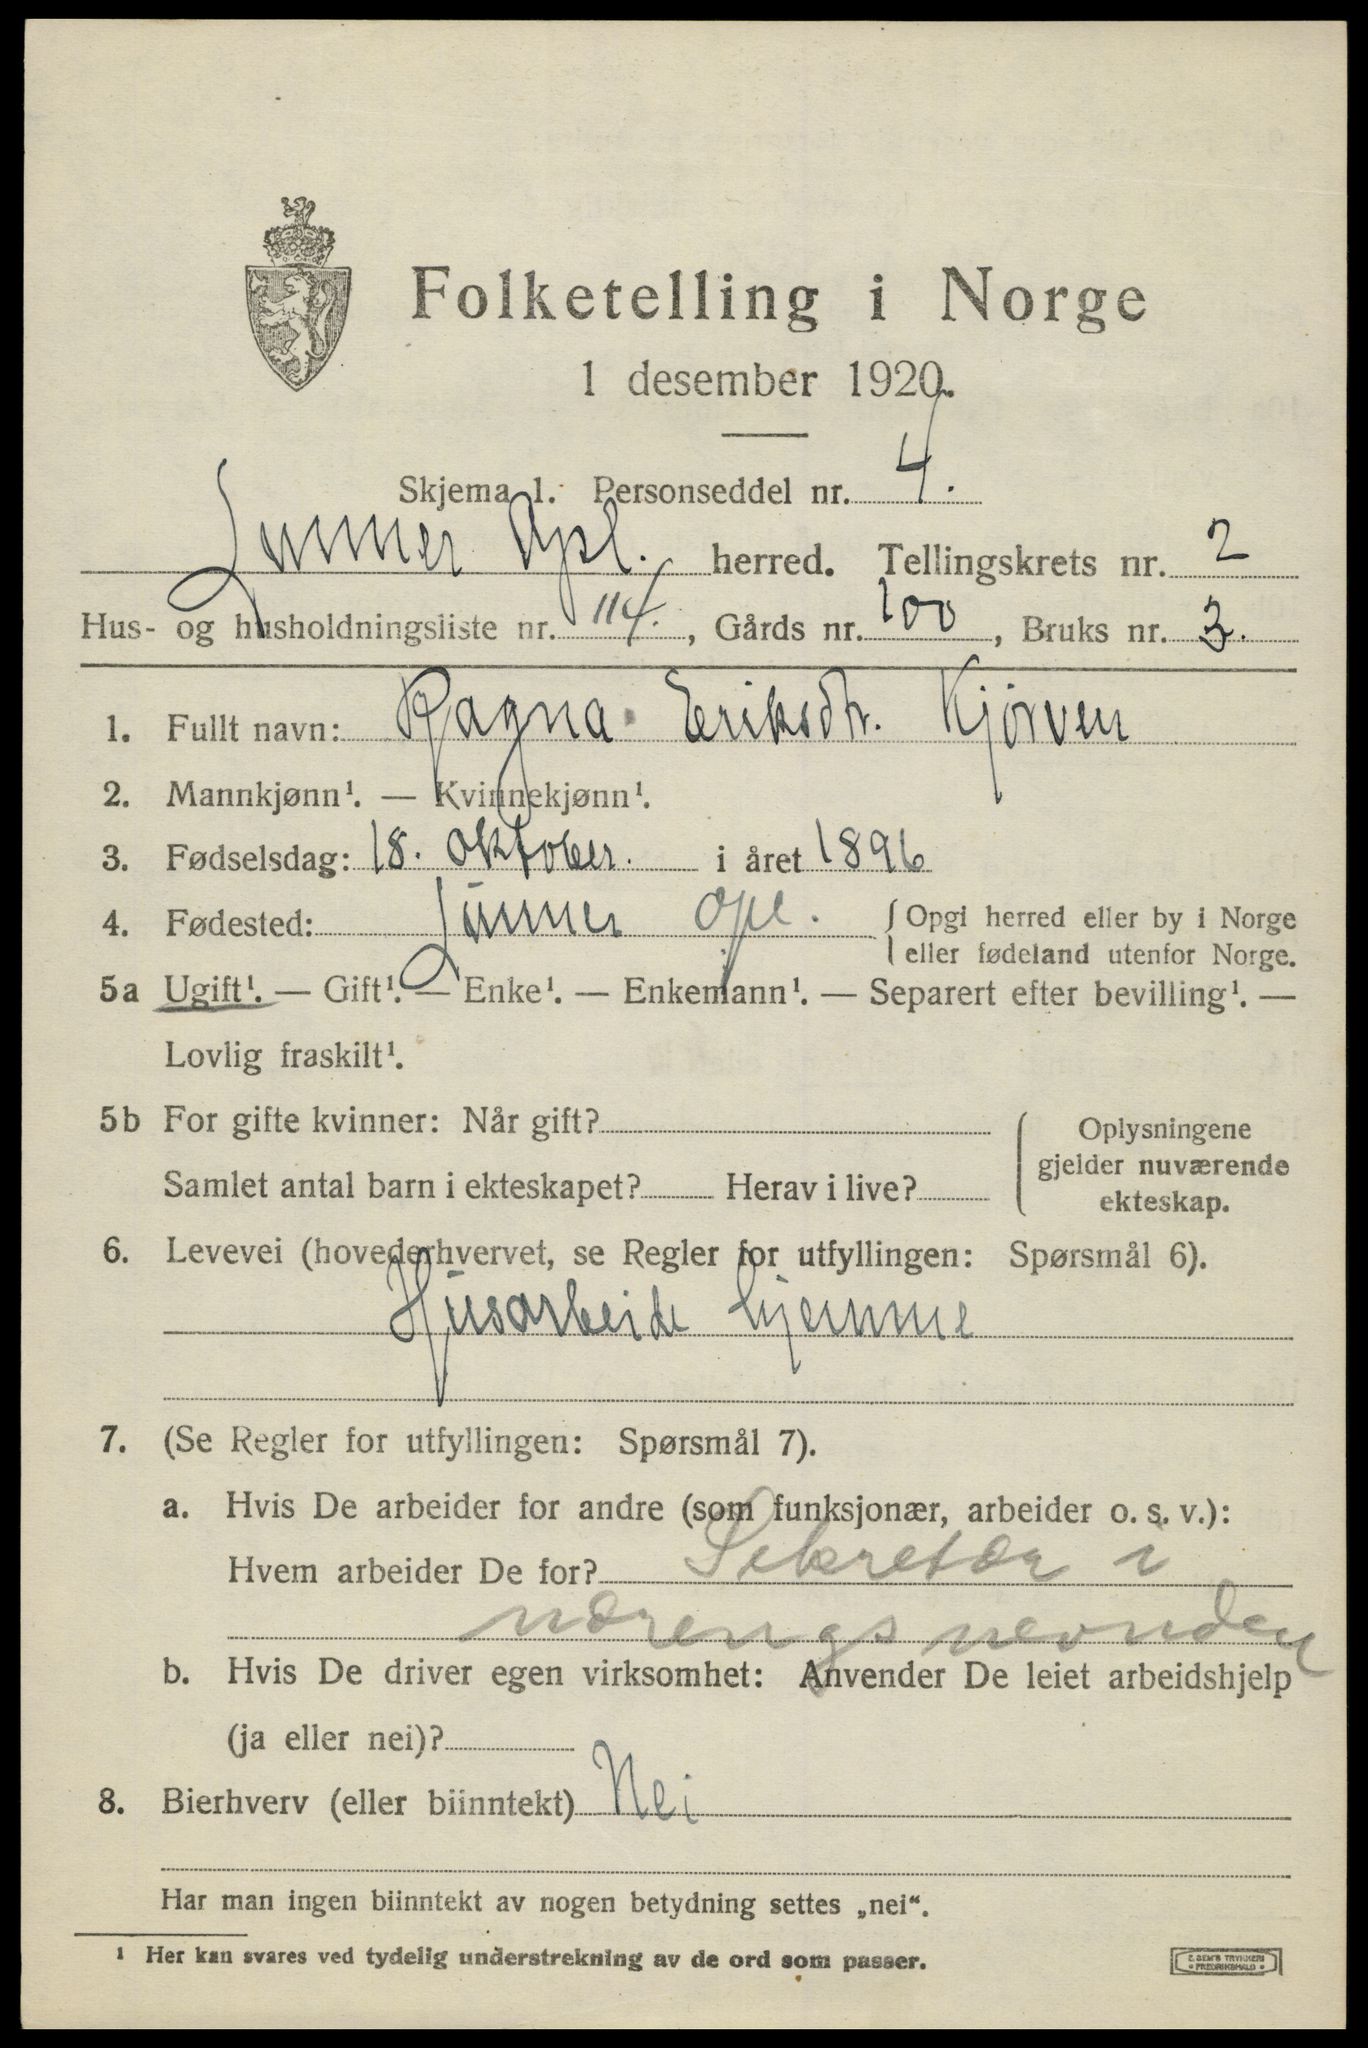 Folketelling i Norge
1 desember 1920.
Skjema 1. Personseddel nr. 4.
Lunner Opl. herred. Tellingskrets nr. 2
Hus- og husholdningsliste nr. 114., Gårds nr. 100, Bruks nr. 3.
1. Fullt navn: Ragna Eriksdtr. Kjørven
2. Mannkjønn¹. — Kvinnekjønn¹.
3. Fødselsdag: 18. oktober. i året 1896
4. Fødested: Lunner Opl. { Opgi herred eller by i Norge
eller fødeland utenfor Norge.
5a Ugift¹. — Gift¹. — Enke¹. — Enkemann¹. — Separert efter bevilling¹. —
Lovlig fraskilt¹.
5b For gifte kvinner: Når gift?
Samlet antal barn i ekteskapet? Herav i live?
Oplysningene
gjelder nuværende
ekteskap.
6. Levevei (hovederhvervet, se Regler for utfyllingen: Spørsmål 6).
Husarbeide hjemme
7. (Se Regler for utfyllingen: Spørsmål 7).
a. Hvis De arbeider for andre (som funksjonær, arbeider o. s. v.):
Hvem arbeider De for? Sekretær i
nærengsnevnden
b. Hvis De driver egen virksomhet: Anvender De leiet arbeidshjelp
(ja eller nei)?
8. Bierhverv (eller biinntekt) Nei
Har man ingen biinntekt av nogen betydning settes „nei“.
¹ Her kan svares ved tydelig understrekning av de ord som passer.
E. SEM'S TRYKKERI
• FREDRIKSHALD •